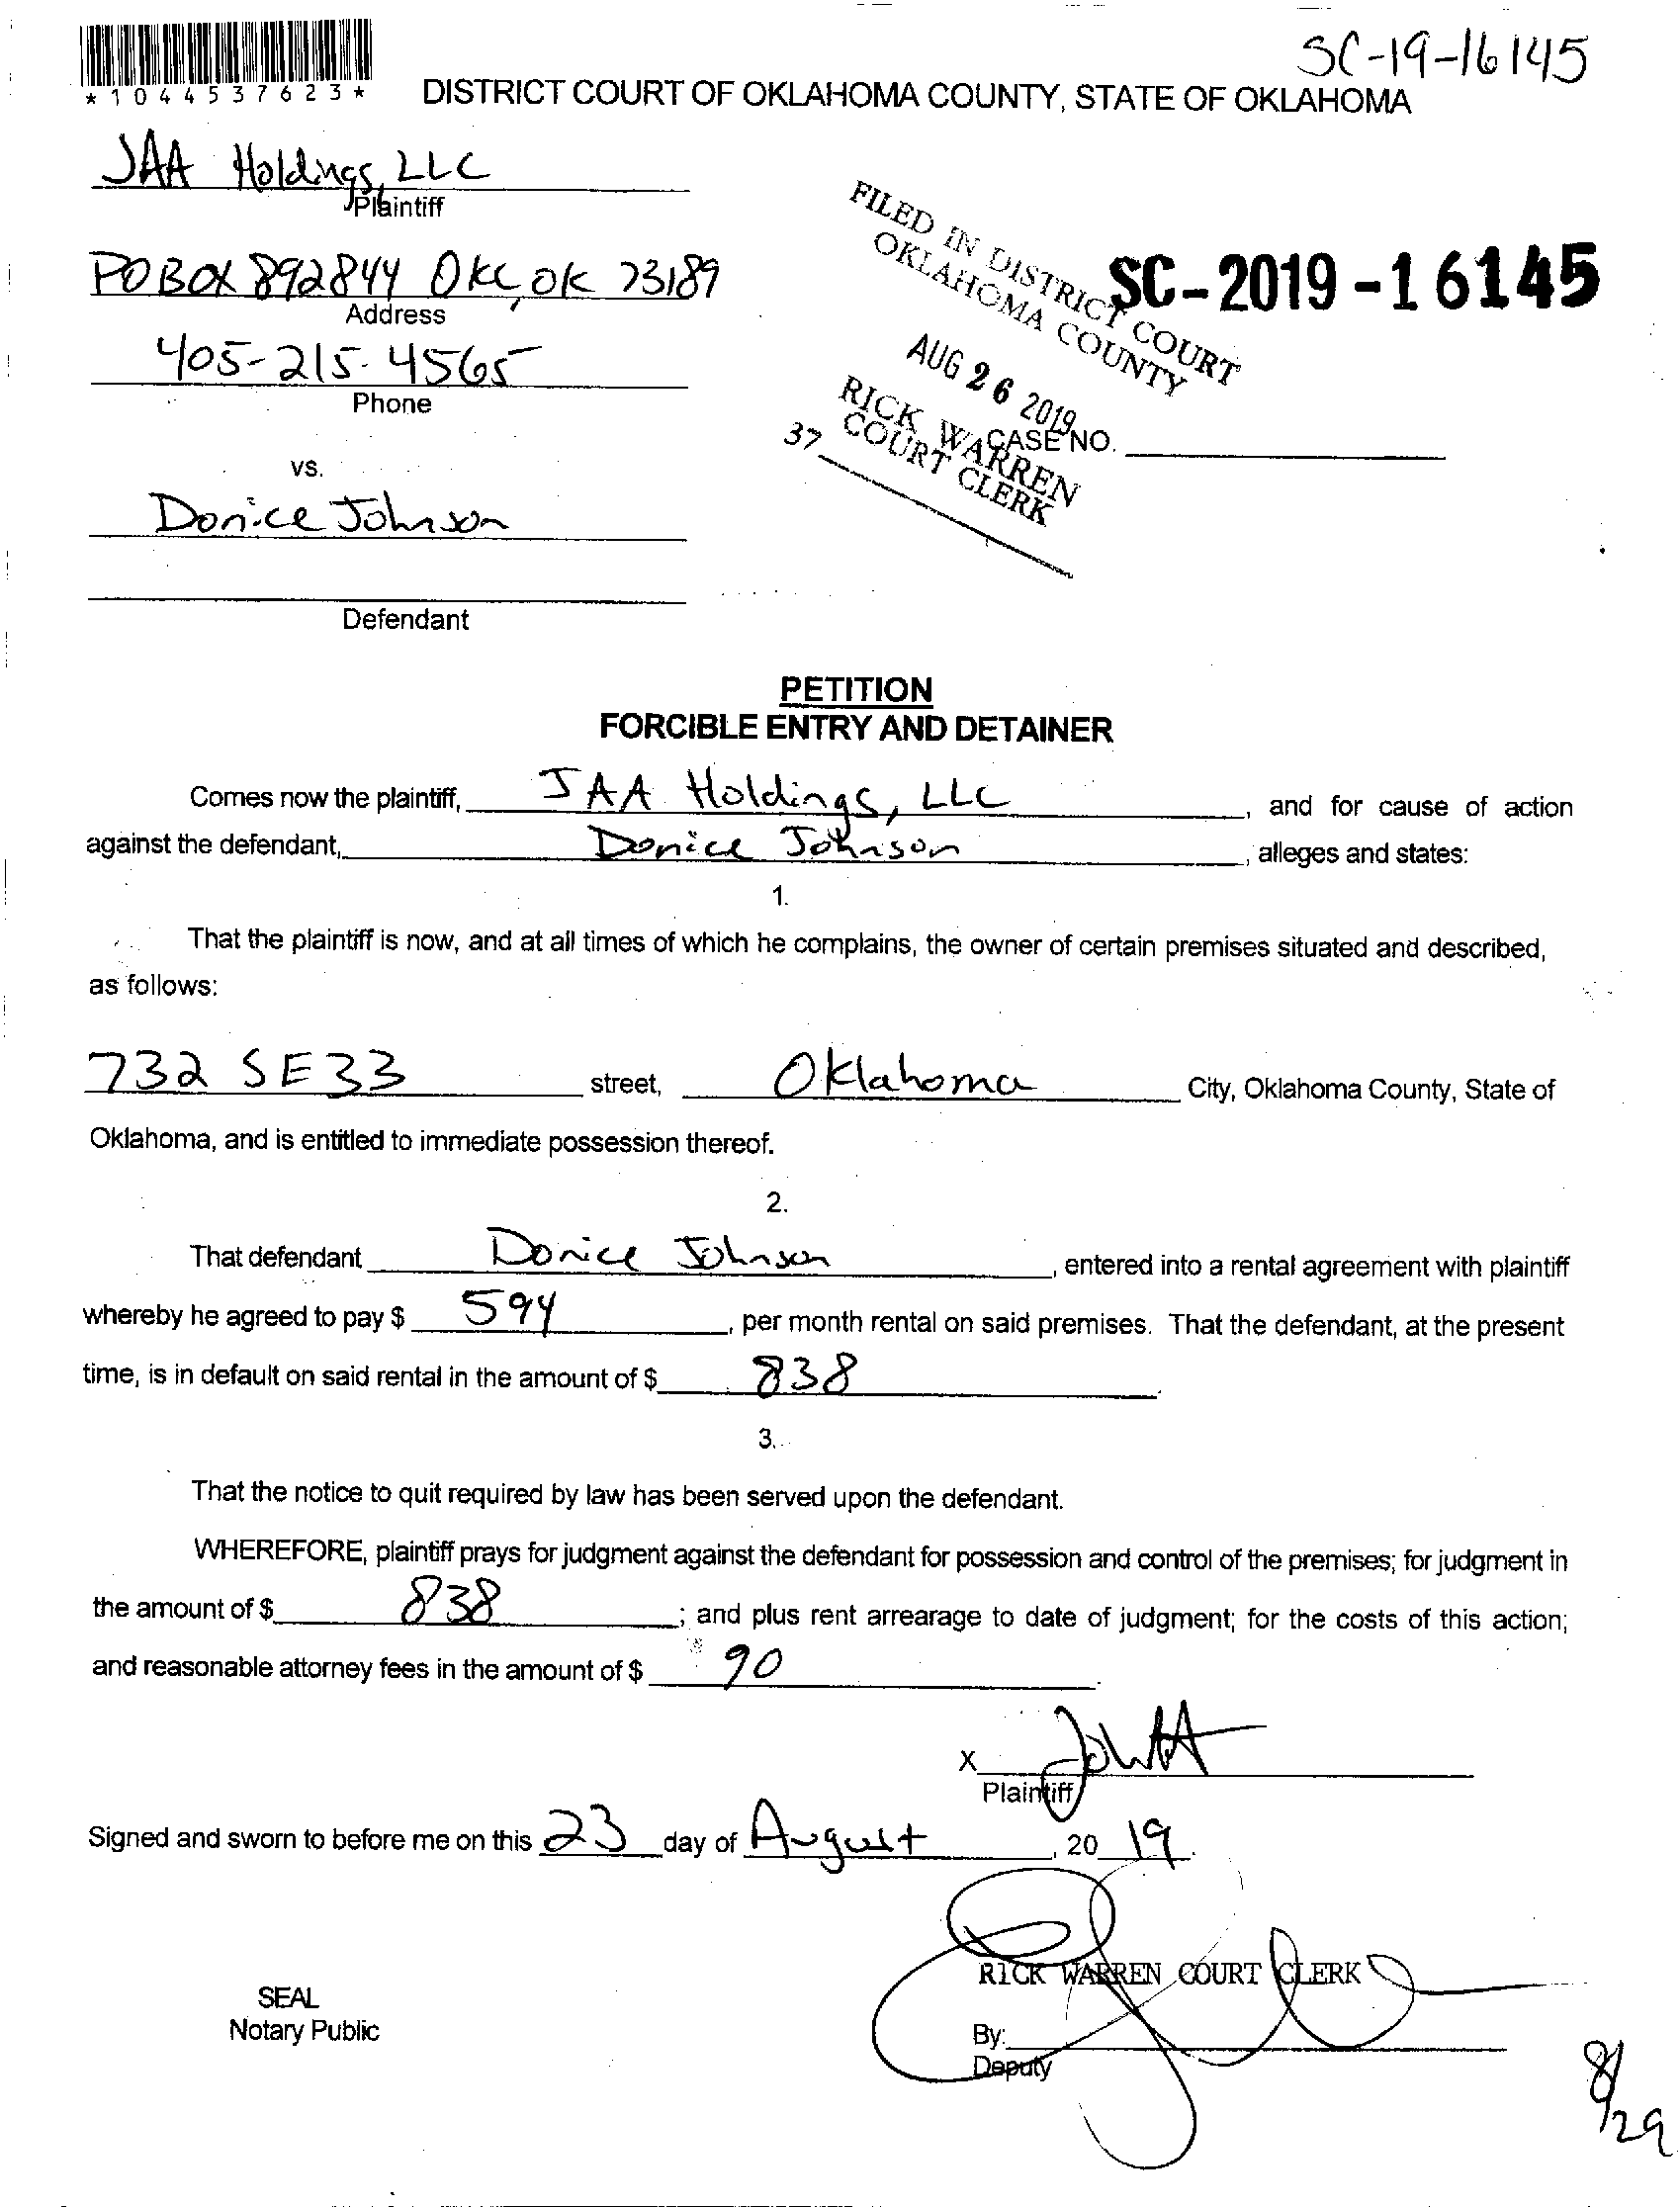 SC-19-16145
*1044537623*
DISTRICT COURT OF OKLAHOMA COUNTY, STATE OF OKLAHOMA
JAA Holdings, LLC
Plaintiff
PO BOX 892844 OKC, OK 73189
Address
405-215-4565
Phone
FILED IN DISTRICT COURT
OKLAHOMA COUNTY
SC-2019-16145
AUG 26 2019
RICK WARREN
COURT CLERK
37
CASE NO.
vs.
Donice Johnson
Defendant
PETITION
FORCIBLE ENTRY AND DETAINER
Comes now the plaintiff, JAA Holdings, LLC, and for cause of action
against the defendant, Donice Johnson, alleges and states:
1.
That the plaintiff is now, and at all times of which he complains, the owner of certain premises situated and described,
as follows:
732 SE 33 street, Oklahoma City, Oklahoma County, State of
Oklahoma, and is entitled to immediate possession thereof.
2.
That defendant Donice Johnson, entered into a rental agreement with plaintiff
whereby he agreed to pay $ 594, per month rental on said premises. That the defendant, at the present
time, is in default on said rental in the amount of $ 838.
3.
That the notice to quit required by law has been served upon the defendant.
WHEREFORE, plaintiff prays for judgment against the defendant for possession and control of the premises; for judgment in
the amount of $ 838; and plus rent arrearage to date of judgment; for the costs of this action;
and reasonable attorney fees in the amount of $ 90.
X
Plaintiff
Signed and sworn to before me on this 23 day of August, 20 19.
RICK WARREN COURT CLERK
SEAL
Notary Public
By:
Deputy
8/29